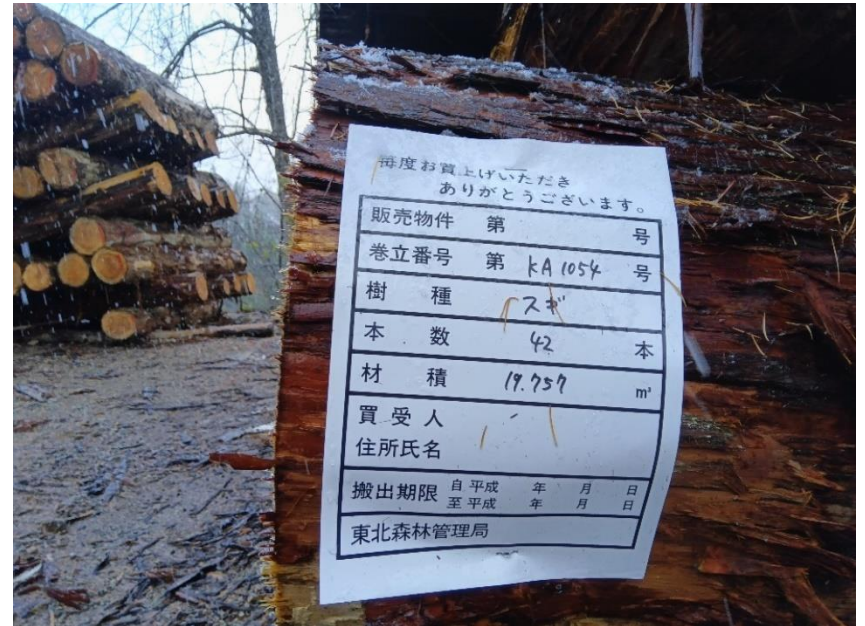 毎度お買上げいただき
ありがとうございます。
販売物件 第 号
巻立番号 第 KA1054 号
樹種 スギ
本数 42 本
材積 19.757 m³
買受人
住所氏名
搬出期限 自平成 年 月 日
至平成 年 月 日
東北森林管理局